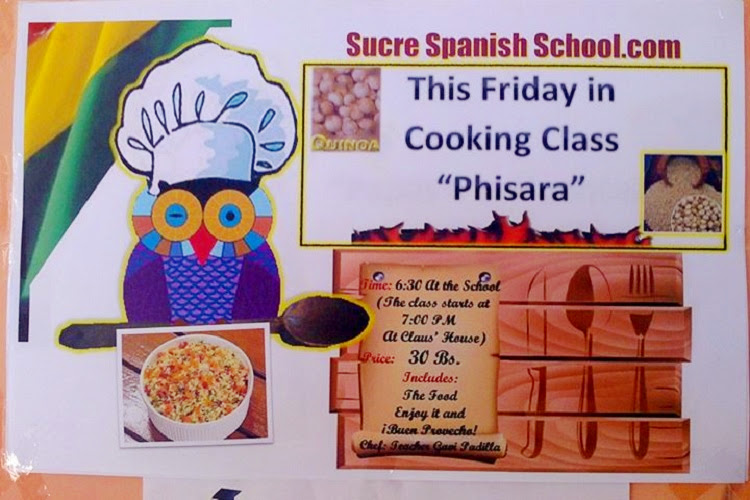 Sucre Spanish School.com
This Friday in
QUINOA
Cooking Class
“Phisara”
Time: 6:30 At the School
(The class starts at
7:00 PM
At Claus" House)
Price: 30 Bs.
Includes:
The Food
Enjoy it and
¡Buen Provecho!
Chef: Teacher Gavi Padilla